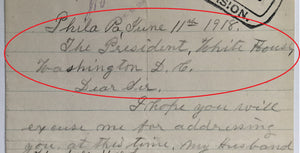 SION.
Phila Pa, June 11th 1918.
The President, White House,
Washington D. C.
Dear Sir.
I hope you will
excuse me for addressing
you, at this time. My husband